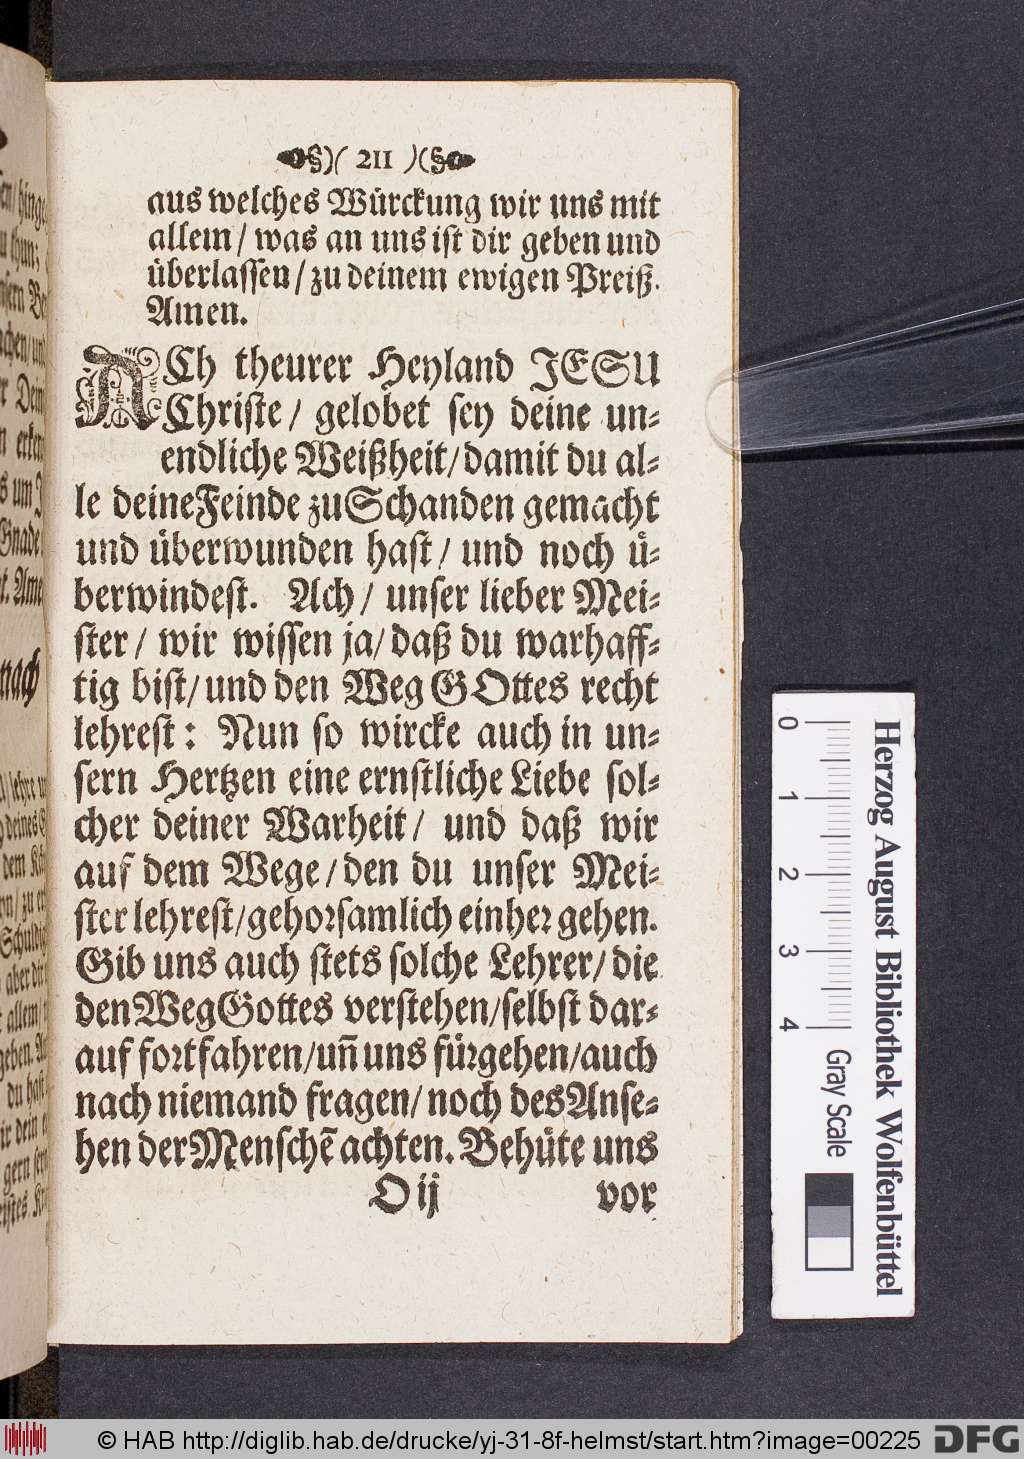 §)( 211 )(§
aus welches Würckung wir uns mit
allem / was an uns ist dir geben und
überlassen / zu deinem ewigen Preiß.
Amen.
ACh theurer Heyland JESU
Christe / gelobet sey deine un-
endliche Weißheit / damit du al-
le deine Feinde zu Schanden gemacht
und überwunden hast / und noch ü-
berwindest. Ach / unser lieber Mei-
ster / wir wissen ja / daß du warhaff-
tig bist / und den Weg GOttes recht
lehrest: Nun so wircke auch in un-
sern Hertzen eine ernstliche Liebe sol-
cher deiner Warheit / und daß wir
auf dem Wege / den du unser Mei-
ster lehrest / gehorsamlich einher gehen.
Gib uns auch stets solche Lehrer / die
den Weg Gottes verstehen / selbst dar-
auf fortfahren / uñ uns fürgehen / auch
nach niemand fragen / noch des Anse-
hen der Menschẽ achten. Behüte uns
O ij vor
Herzog August Bibliothek Wolfenbüttel
0 1 2 3 4 Gray Scale
© HAB http://diglib.hab.de/drucke/yj-31-8f-helmst/start.htm?image=00225 DFG